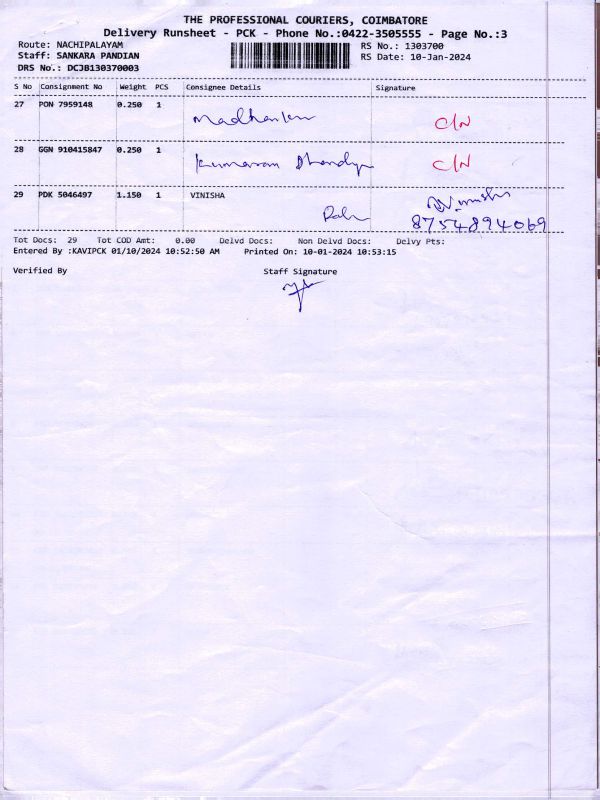 THE PROFESSIONAL COURIERS, COIMBATORE
Delivery Runsheet - PCK - Phone No.:0422-3505555 - Page No.:3
Route: NACHIPALAYAM RS No.: 1303700
Staff: SANKARA PANDIAN RS Date: 10-Jan-2024
DRS No.: DCJB130370003
S No Consignment No Weight PCS Consignee Details Signature
27 PON 7959148 0.250 1
C/N
28 GGN 910415847 0.250 1
C/N
29 PDK 5046497 1.150 1 VINISHA
8754894069
Tot Docs: 29 Tot COD Amt: 0.00 Delvd Docs: Non Delvd Docs: Delvy Pts:
Entered By :KAVIPCK 01/10/2024 10:52:50 AM Printed On: 10-01-2024 10:53:15
Verified By Staff Signature